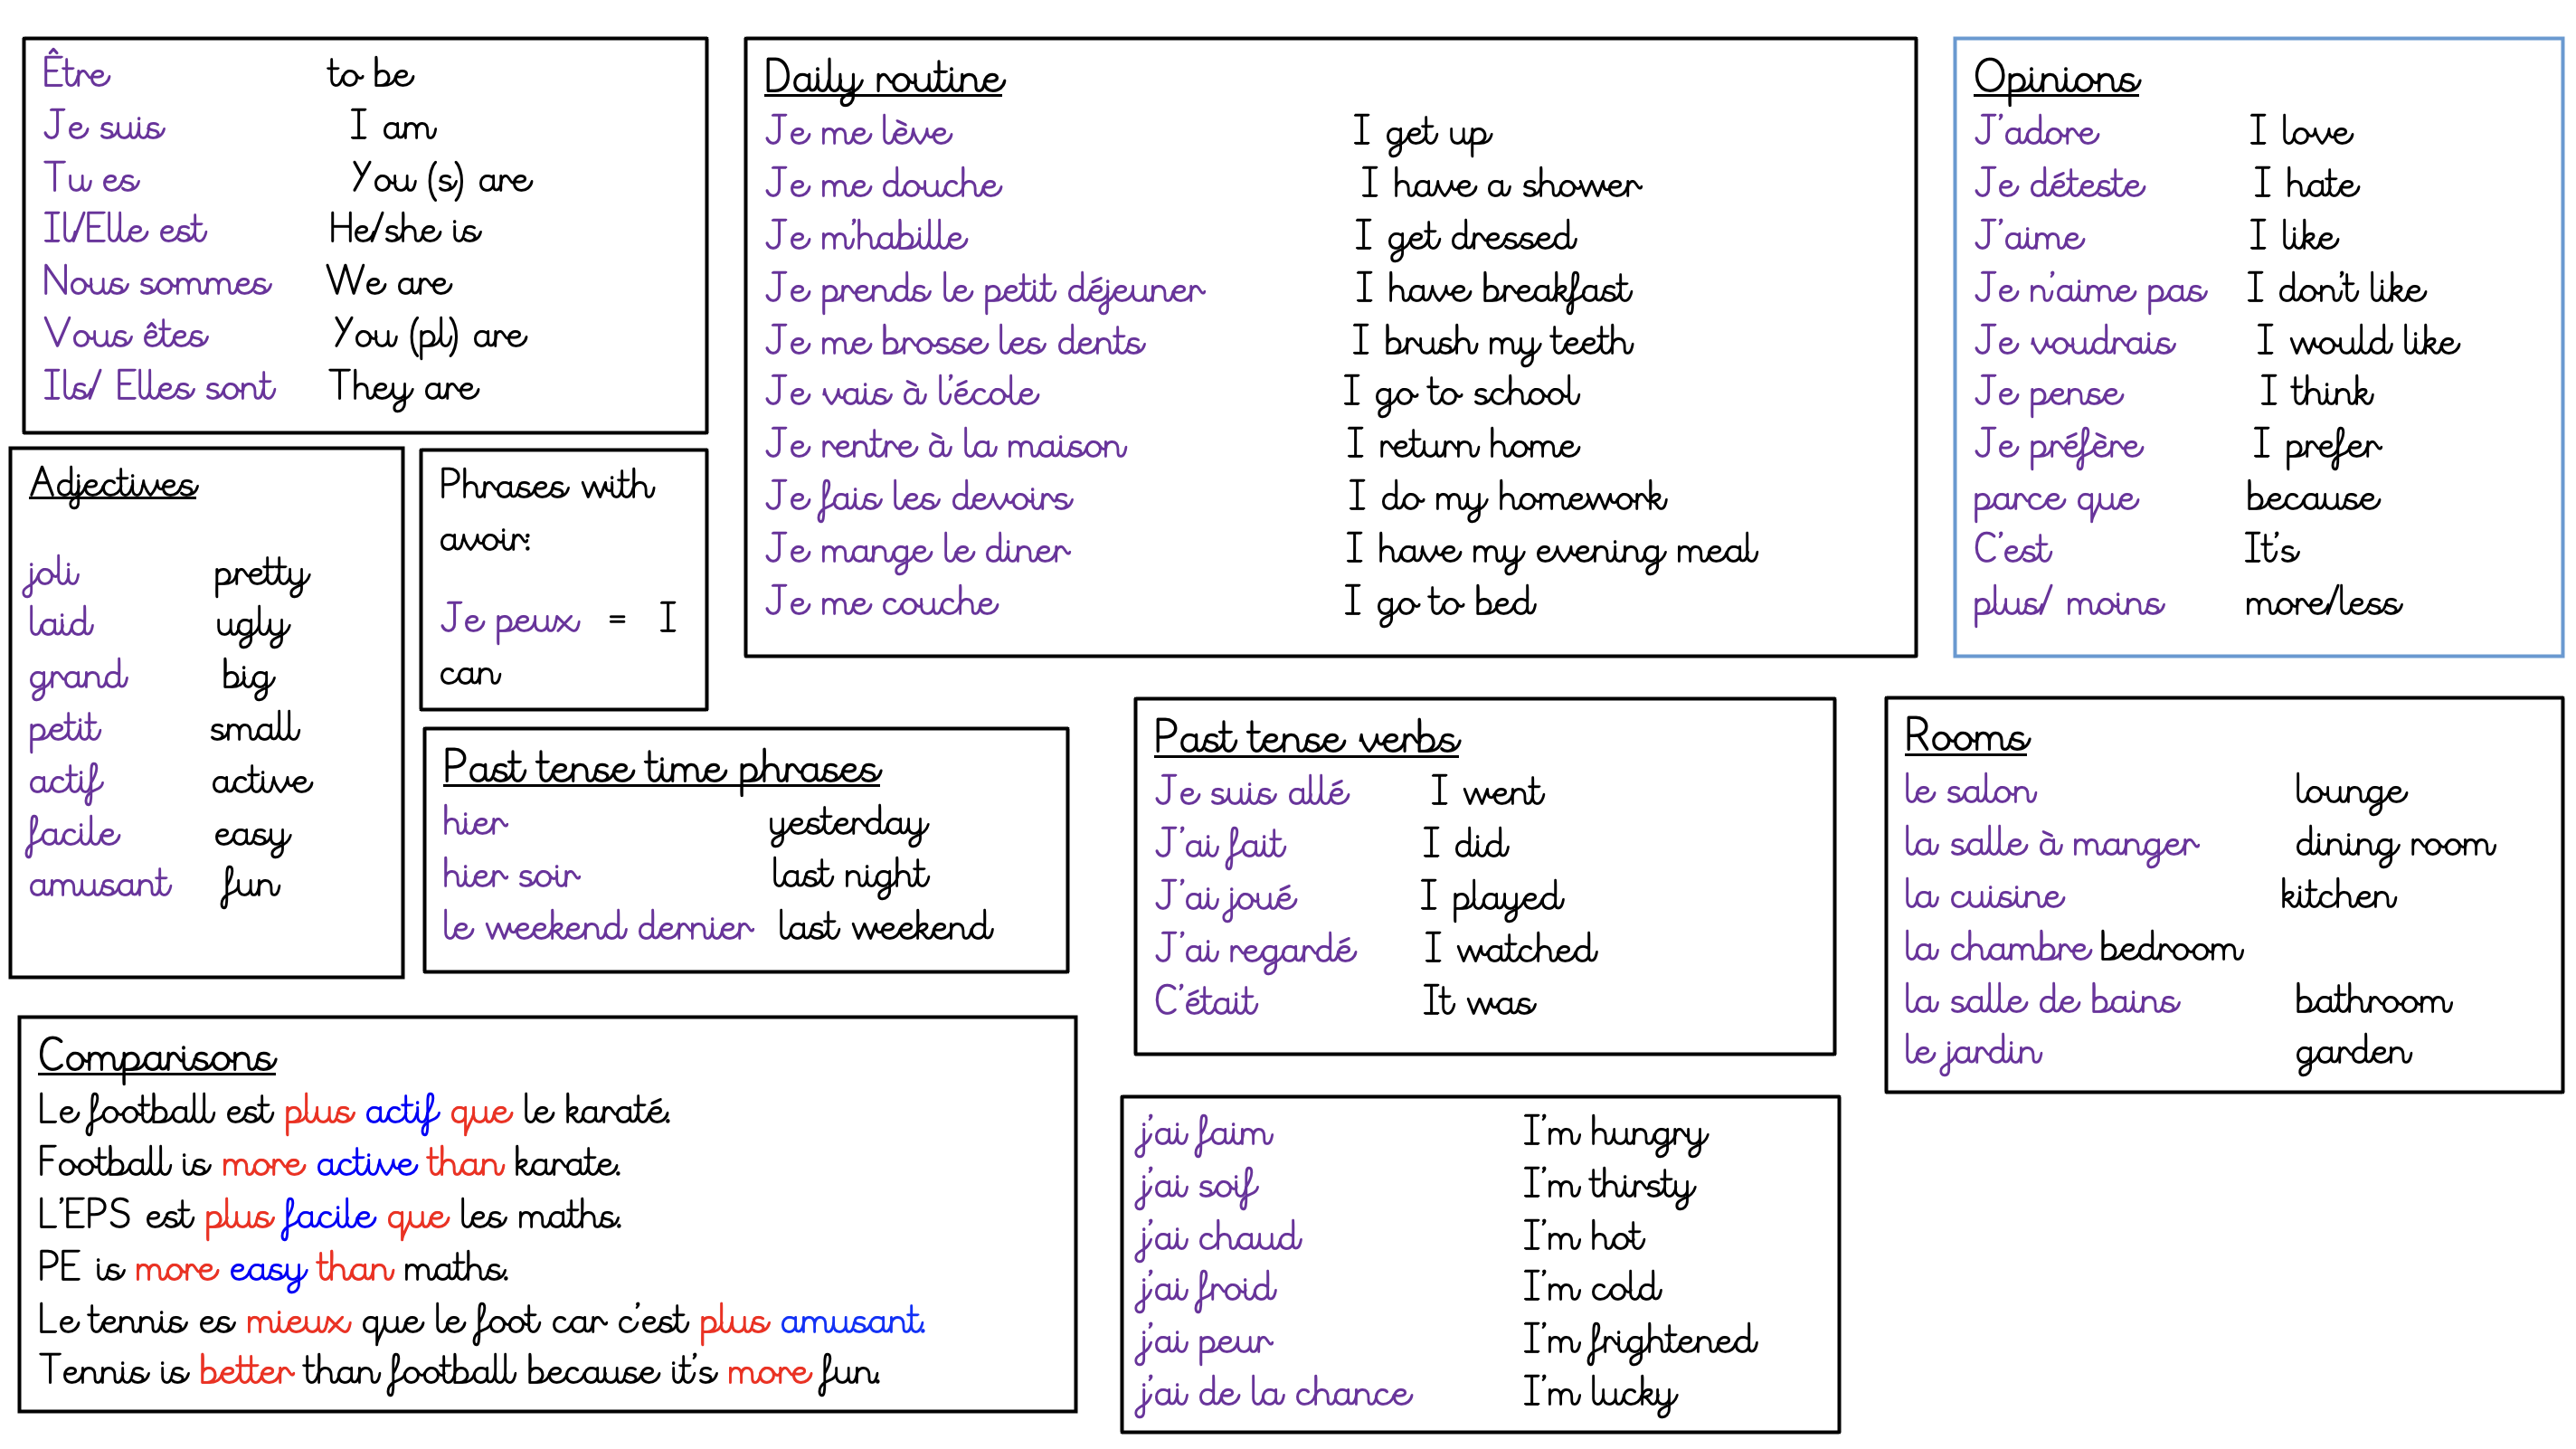 Être to be
Je suis I am
Tu es You (s) are
Il/Elle est He/she is
Nous sommes We are
Vous êtes You (pl) are
Ils/ Elles sont They are
Daily routine
Je me lève I get up
Je me douche I have a shower
Je m'habille I get dressed
Je prends le petit déjeuner I have breakfast
Je me brosse les dents I brush my teeth
Je vais à l'école I go to school
Je rentre à la maison I return home
Je fais les devoirs I do my homework
Je mange le diner I have my evening meal
Je me couche I go to bed
Opinions
J'adore I love
Je déteste I hate
J'aime I like
Je n'aime pas I don't like
Je voudrais I would like
Je pense I think
Je préfère I prefer
parce que because
C'est It's
plus/ moins more/less
Adjectives
joli pretty
laid ugly
grand big
petit small
actif active
facile easy
amusant fun
Phrases with
avoir:
Je peux = I
can
Past tense time phrases
hier yesterday
hier soir last night
le weekend dernier last weekend
Past tense verbs
Je suis allé I went
J'ai fait I did
J'ai joué I played
J'ai regardé I watched
C'était It was
Rooms
le salon lounge
la salle à manger dining room
la cuisine kitchen
la chambre bedroom
la salle de bains bathroom
le jardin garden
Comparisons
Le football est plus actif que le karaté.
Football is more active than karate.
L'EPS est plus facile que les maths.
PE is more easy than maths.
Le tennis es mieux que le foot car c'est plus amusant.
Tennis is better than football because it's more fun.
j'ai faim I'm hungry
j'ai soif I'm thirsty
j'ai chaud I'm hot
j'ai froid I'm cold
j'ai peur I'm frightened
j'ai de la chance I'm lucky